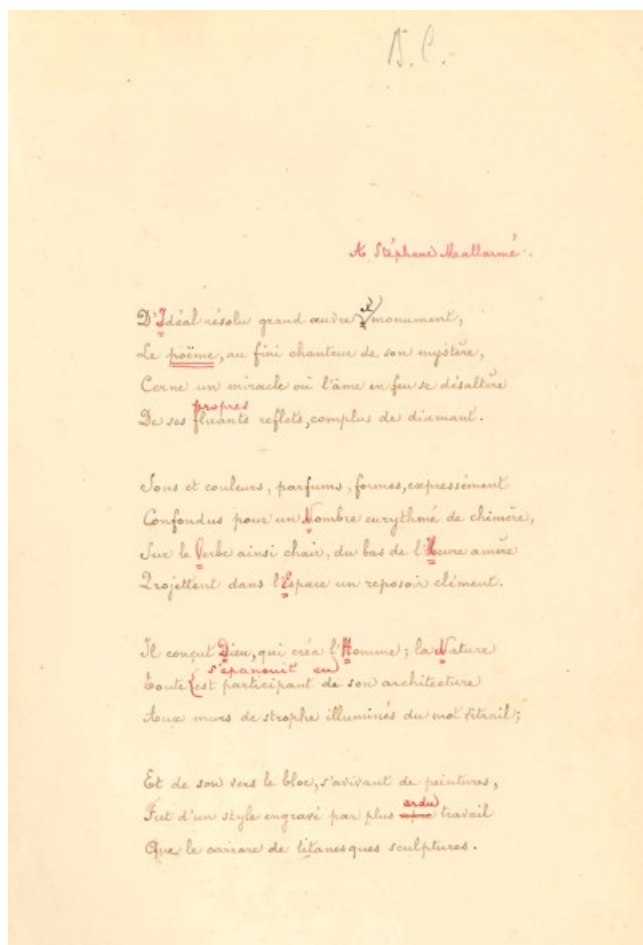 A Stéphane Mallarmé.
D'Idéal résolu grand œuvre et monument,
Le poëme, au fini chanteur de son mystère,
Cerne un miracle où l'âme en feu se désaltère
propres
De ses fluants reflets, complus de diamant.
Sons et couleurs, parfums, formes, expressément
Confondus pour un Nombre eurythmé de chimère,
Sur le Verbe ainsi chair, du bas de l'Heure amère
Projettent dans l'Espace un reposoir clément.
Il conçut Dieu, qui créa l'Homme ; la Nature
s'épanouit en
Toute est participant de son architecture
Aux murs de strophe illuminés du mot vitrail ;
Et de son vers le bloc, s'avivant de peintures,
ardu
Fut d'un style engravé par plus travail
Que le carrare de titanesques sculptures.